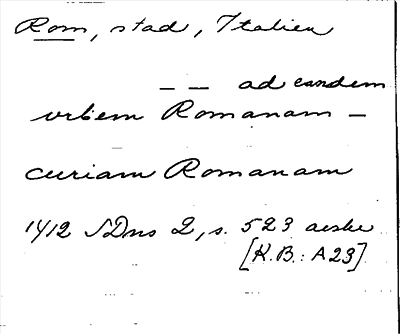 Rom, stad, Italien
— — ad eandem
urbem Romanam —
curiam Romanam
1412 SDns 2, s. 523
[K.B.: A23]